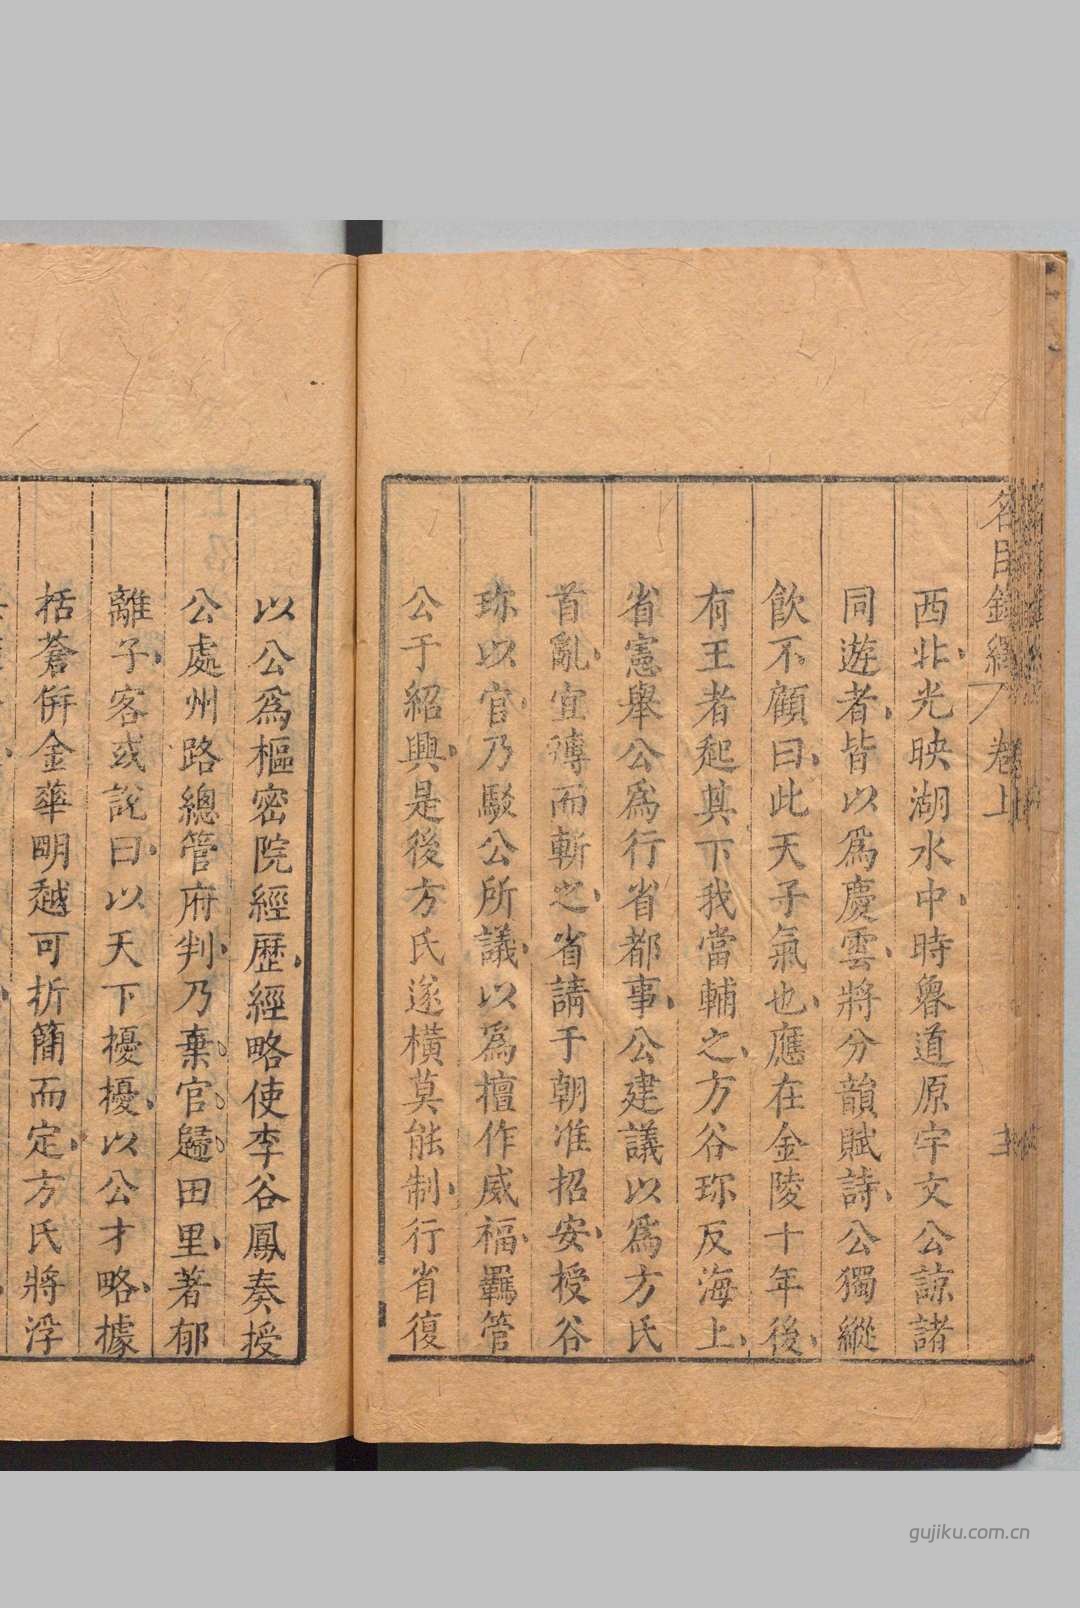 西北、光映湖水中、時魯道原宇文公諒諸
同遊者、皆以爲慶雲、將分韻賦詩、公獨縱
飲不顧曰、此天子氣也、應在金陵十年後、
有王者起其下我當輔之、方谷珎反海上、
省憲舉公爲行省都事、公建議以爲方氏
首亂、宜䙏而斬之、省請于朝准招安、授谷
珎以官、乃駁公所議、以爲擅作威福、羈管
公于紹興、是後方氏遂橫莫能制、行省復
以公爲樞密院經歷、經略使李谷鳳奏授
公處州路總管府判、乃棄官歸田里、著郁
離子、客或說曰、以天下擾擾、以公才略、據
括蒼併金華明越可折簡而定、方氏將浮
卷上
gujiku.com.cn